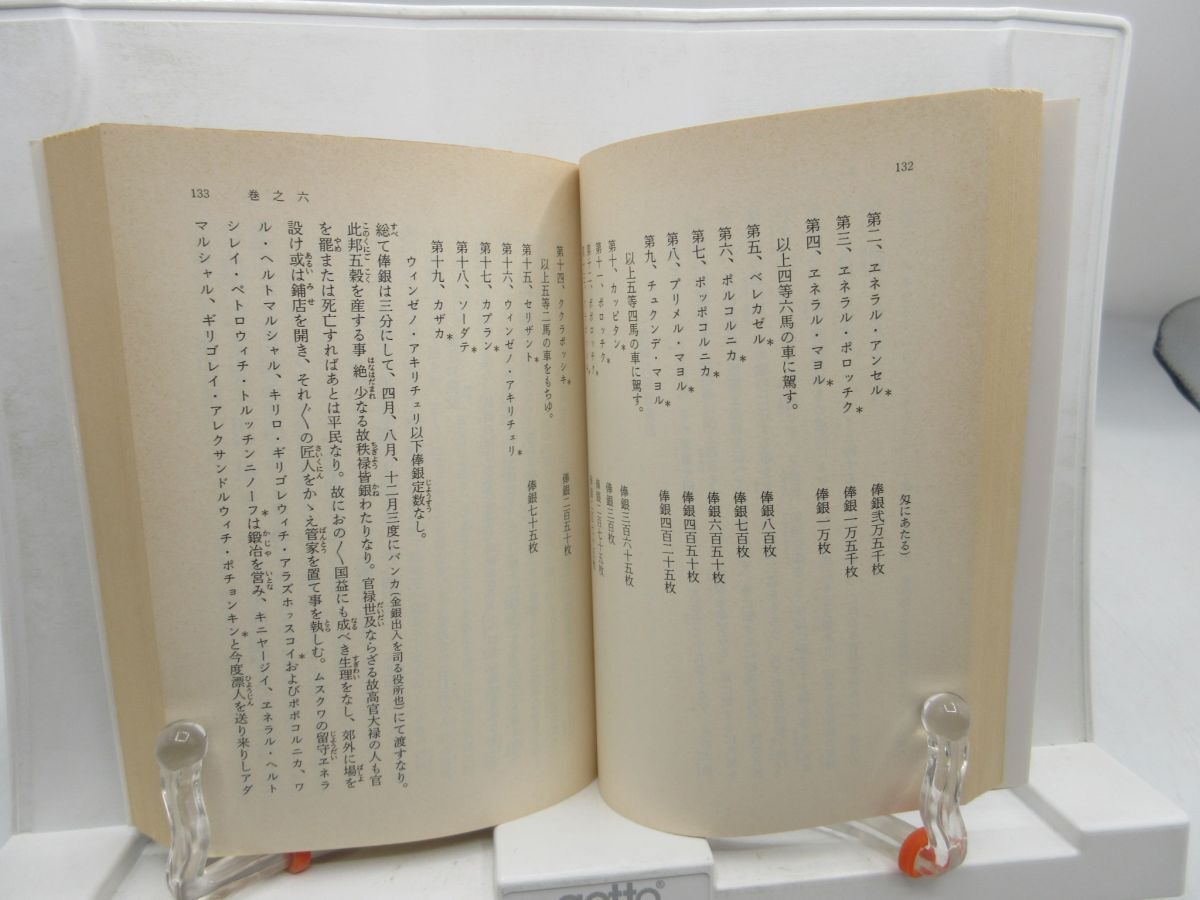 132
匁にあたる)
第二、ヱネラル・アンセル* 俸銀弐万五千枚
第三、ヱネラル・ポロッチク* 俸銀一万五千枚
第四、ヱネラル・マヨル* 俸銀一万枚
以上四等六馬の車に駕す。
第五、ベレカゼル* 俸銀八百枚
第六、ポルコルニカ* 俸銀七百枚
第七、ポッポコルニカ* 俸銀六百五十枚
第八、プリメル・マヨル* 俸銀四百五十枚
第九、チュクンデ・マヨル* 俸銀四百二十五枚
以上五等四馬の車に駕す。
第十、カッピタン* 俸銀三百六十五枚
第十一、ポロッチク* 俸銀三百枚
133 巻之六
第十四、ククラポッシキ* 俸銀二百五十枚
以上五等二馬の車をもちゆ。
第十五、セリザント* 俸銀七十五枚
第十六、ウィンゼノ・アキリチェリ*
第十七、カプラン*
第十八、ソーダテ*
第十九、カザカ*
ウィンゼノ・アキリチェリ以下俸銀定数なし。
総て俸銀は三分にして、四月、八月、十二月三度にバンカ(金銀出入を司る役所也)にて渡すなり。
此邦五穀を産する事絶少なる故秩禄皆銀わたりなり。官禄世及ならざる故高官大禄の人も官
を罷または死亡すればあとは平民なり。故におの〱国益にも成べき生理をなし、郊外に場を
設け或は鋪店を開き、それ〲の匠人をかゝえ管家を置て事を執しむ。ムスクワの留守ヱネラ
ル・ヘルトマルシャル、キリロ・ギリゴレウィチ・アラズホッスコイ*およびポポコルニカ、ワ
シレイ・ペトロウィチ・トルッチンニノーフ*は鍛冶を営み、キニヤージイ、ヱネラル・ヘルト
マルシャル、ギリゴレイ・アレクサンドルウィチ・ポチョンキン*と今度漂人を送り来りしアダ